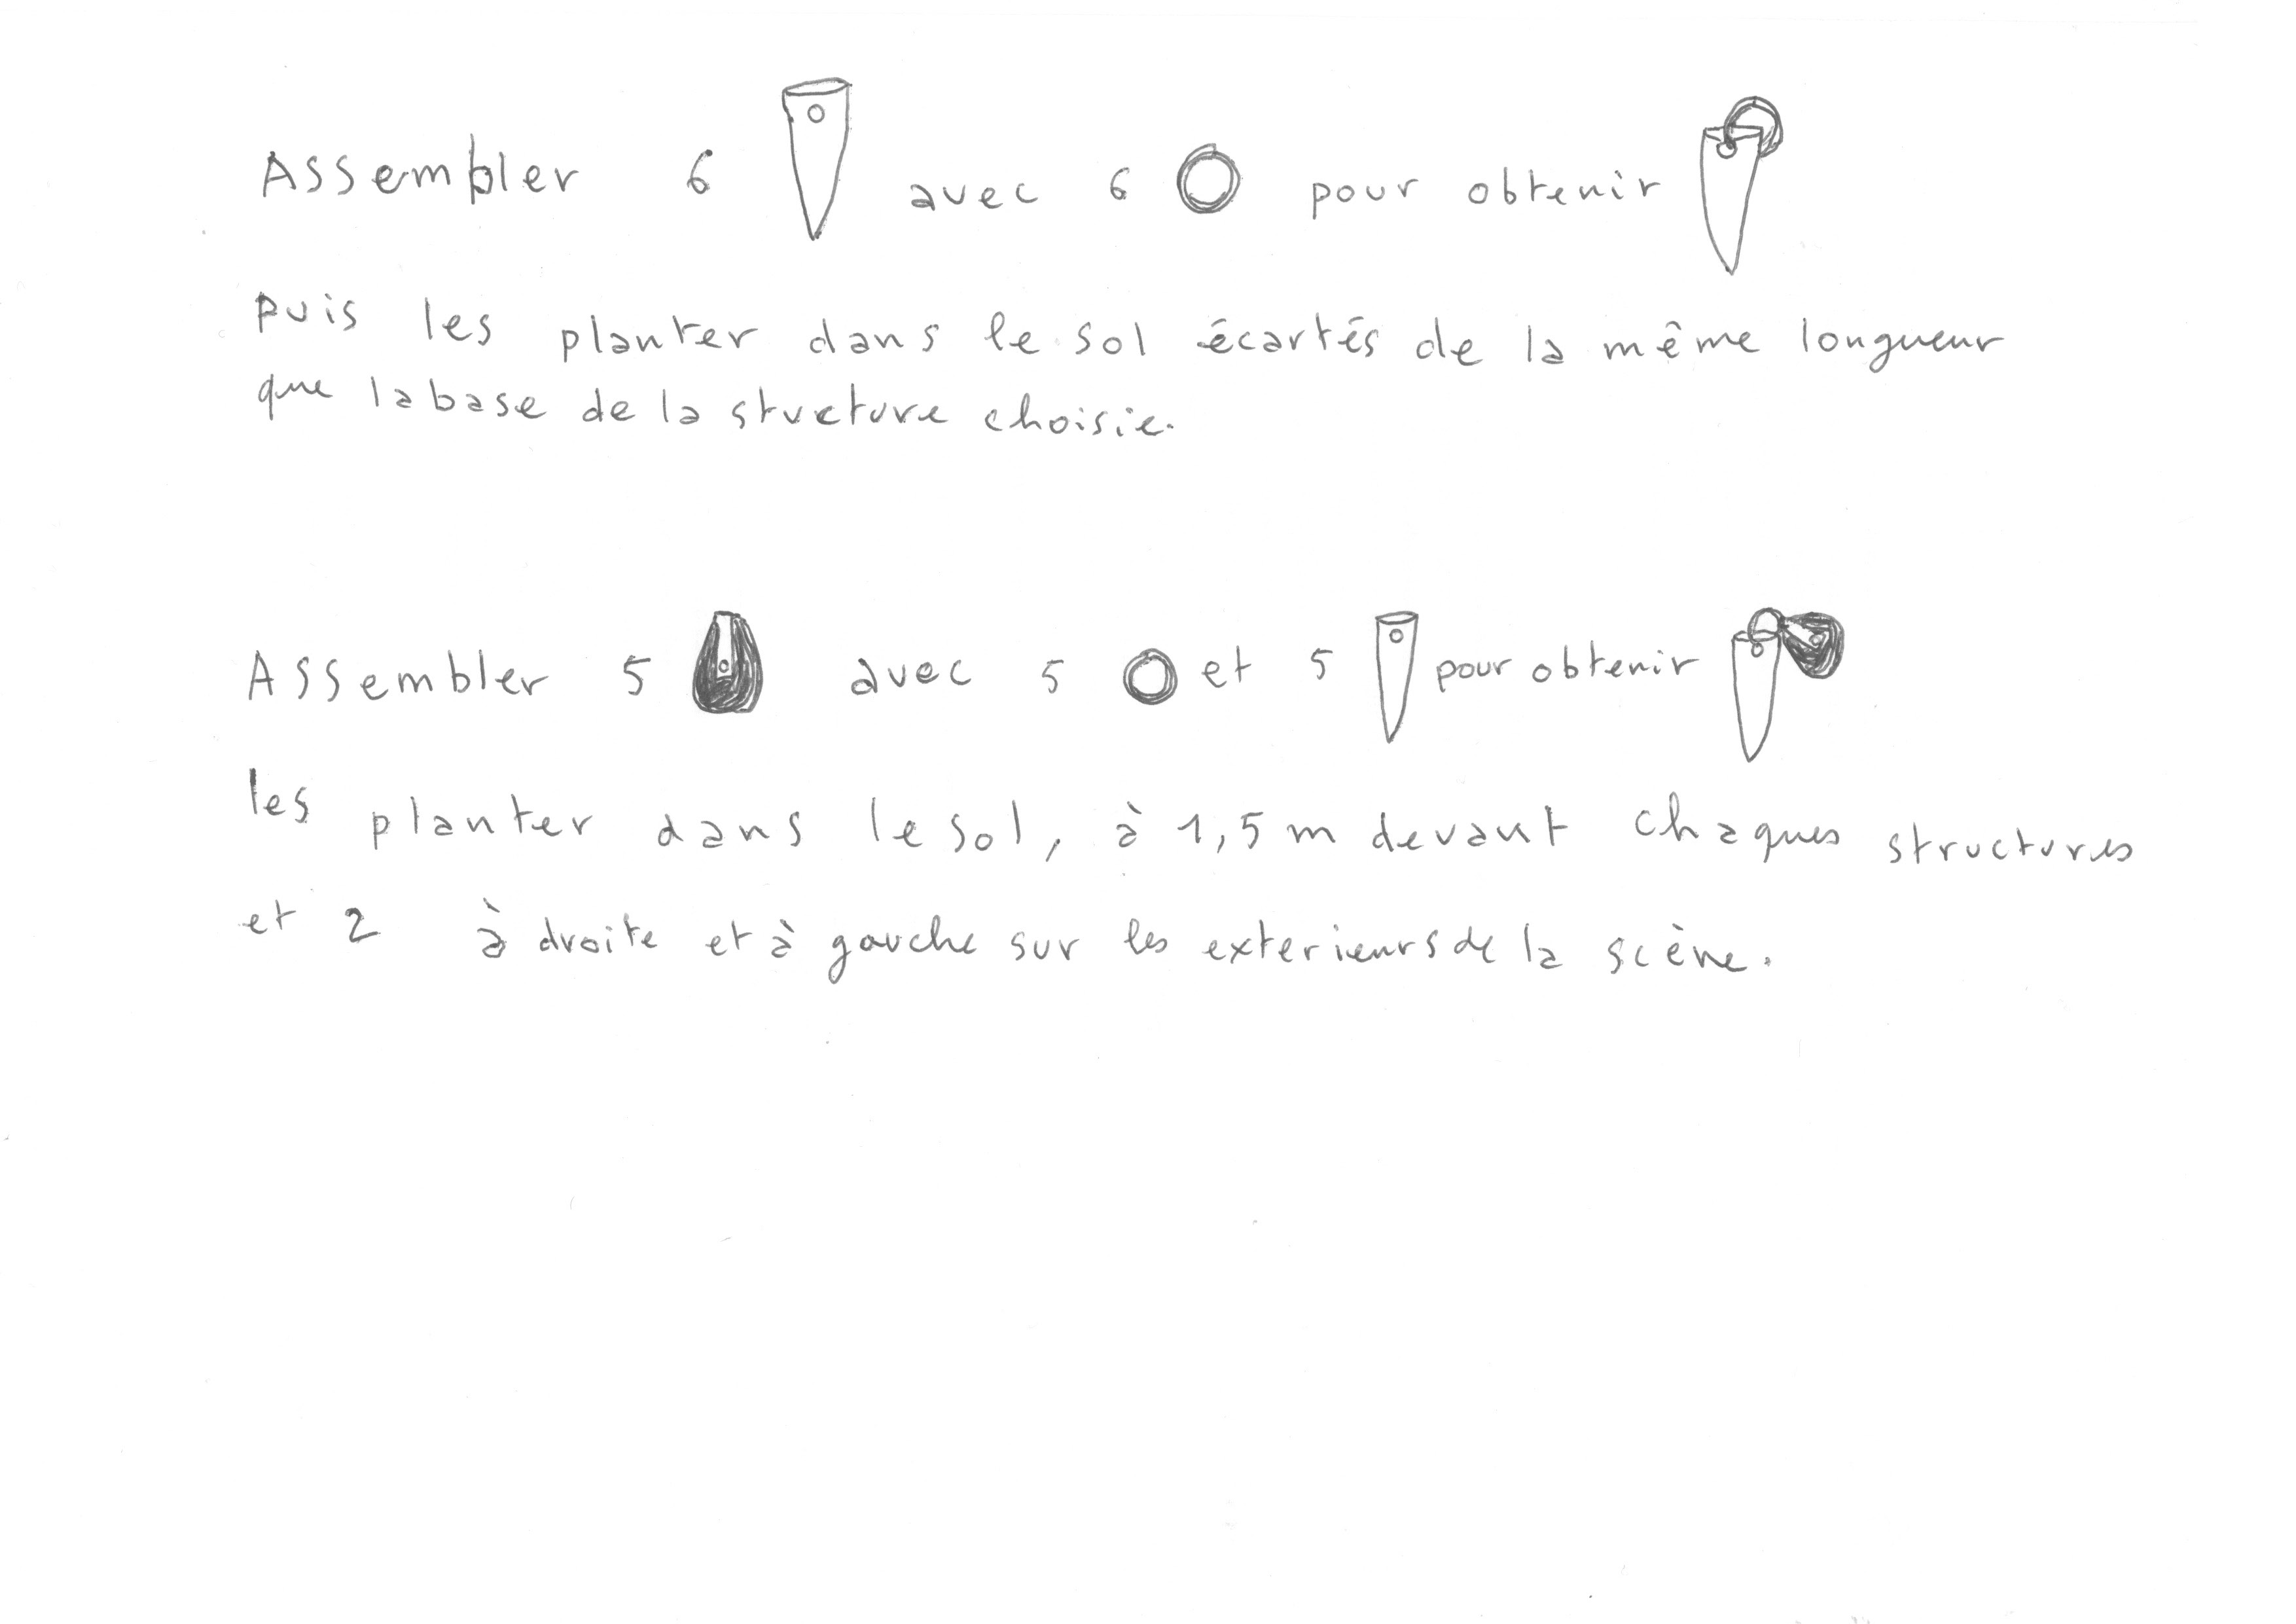 Assembler 6 avec 6 pour obtenir
puis les planter dans le sol écartés de la même longueur
que la base de la structure choisie.
Assembler 5 avec 5 et 5 pour obtenir
les planter dans le sol, à 1,5 m devant chaques structures
et 2 à droite et à gauche sur les exterieurs de la scène.